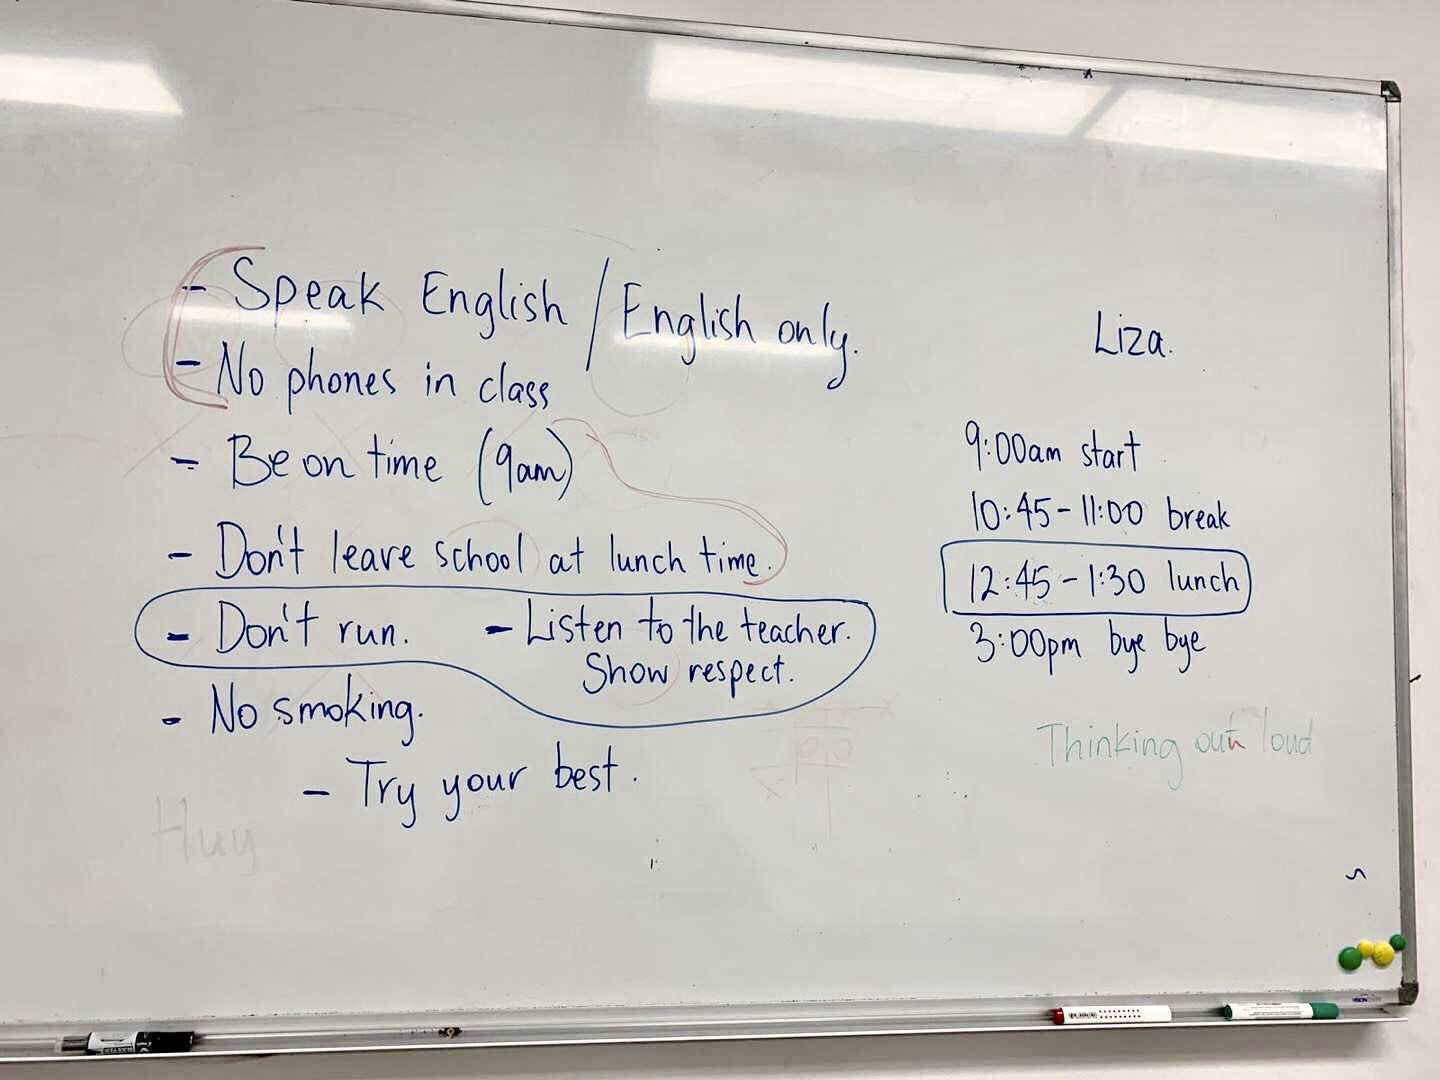 - Speak English / English only.
- No phones in class
- Be on time (9am)
- Don't leave school at lunch time.
- Don't run.
- Listen to the teacher.
Show respect.
- No smoking.
- Try your best.
Huy
Liza.
9:00am start
10:45-11:00 break
12:45-1:30 lunch
3:00pm bye bye
Thinking out loud